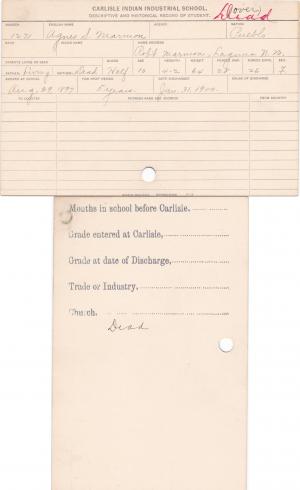 CARLISLE INDIAN INDUSTRIAL SCHOOL. (over)
DESCRIPTIVE AND HISTORICAL RECORD OF STUDENT. Dead
NUMBER ENGLISH NAME AGENCY NATION
1271 Agnes S. Marmon Pueblo
BAND INDIAN NAME HOME ADDRESS
Robt Marmon, Laguna N. M.
PARENTS LIVING OR DEAD BLOOD AGE HEIGHT WEIGHT FORCED INSP. FORCED EXPR. SEX
Father Living Mother Dead Half 10 4-2 64 28 26 F.
ARRIVED AT SCHOOL FOR WHAT PERIOD DATE DISCHARGED CAUSE OF DISCHARGE
Aug. 29, 1897 5 years. Jan. 31, 1900.
TO COUNTRY PATRONS NAME AND ADDRESS FROM COUNTRY
Months in school before Carlisle,
Grade entered at Carlisle,
Grade at date of Discharge,
Trade or Industry.
Church.
Dead